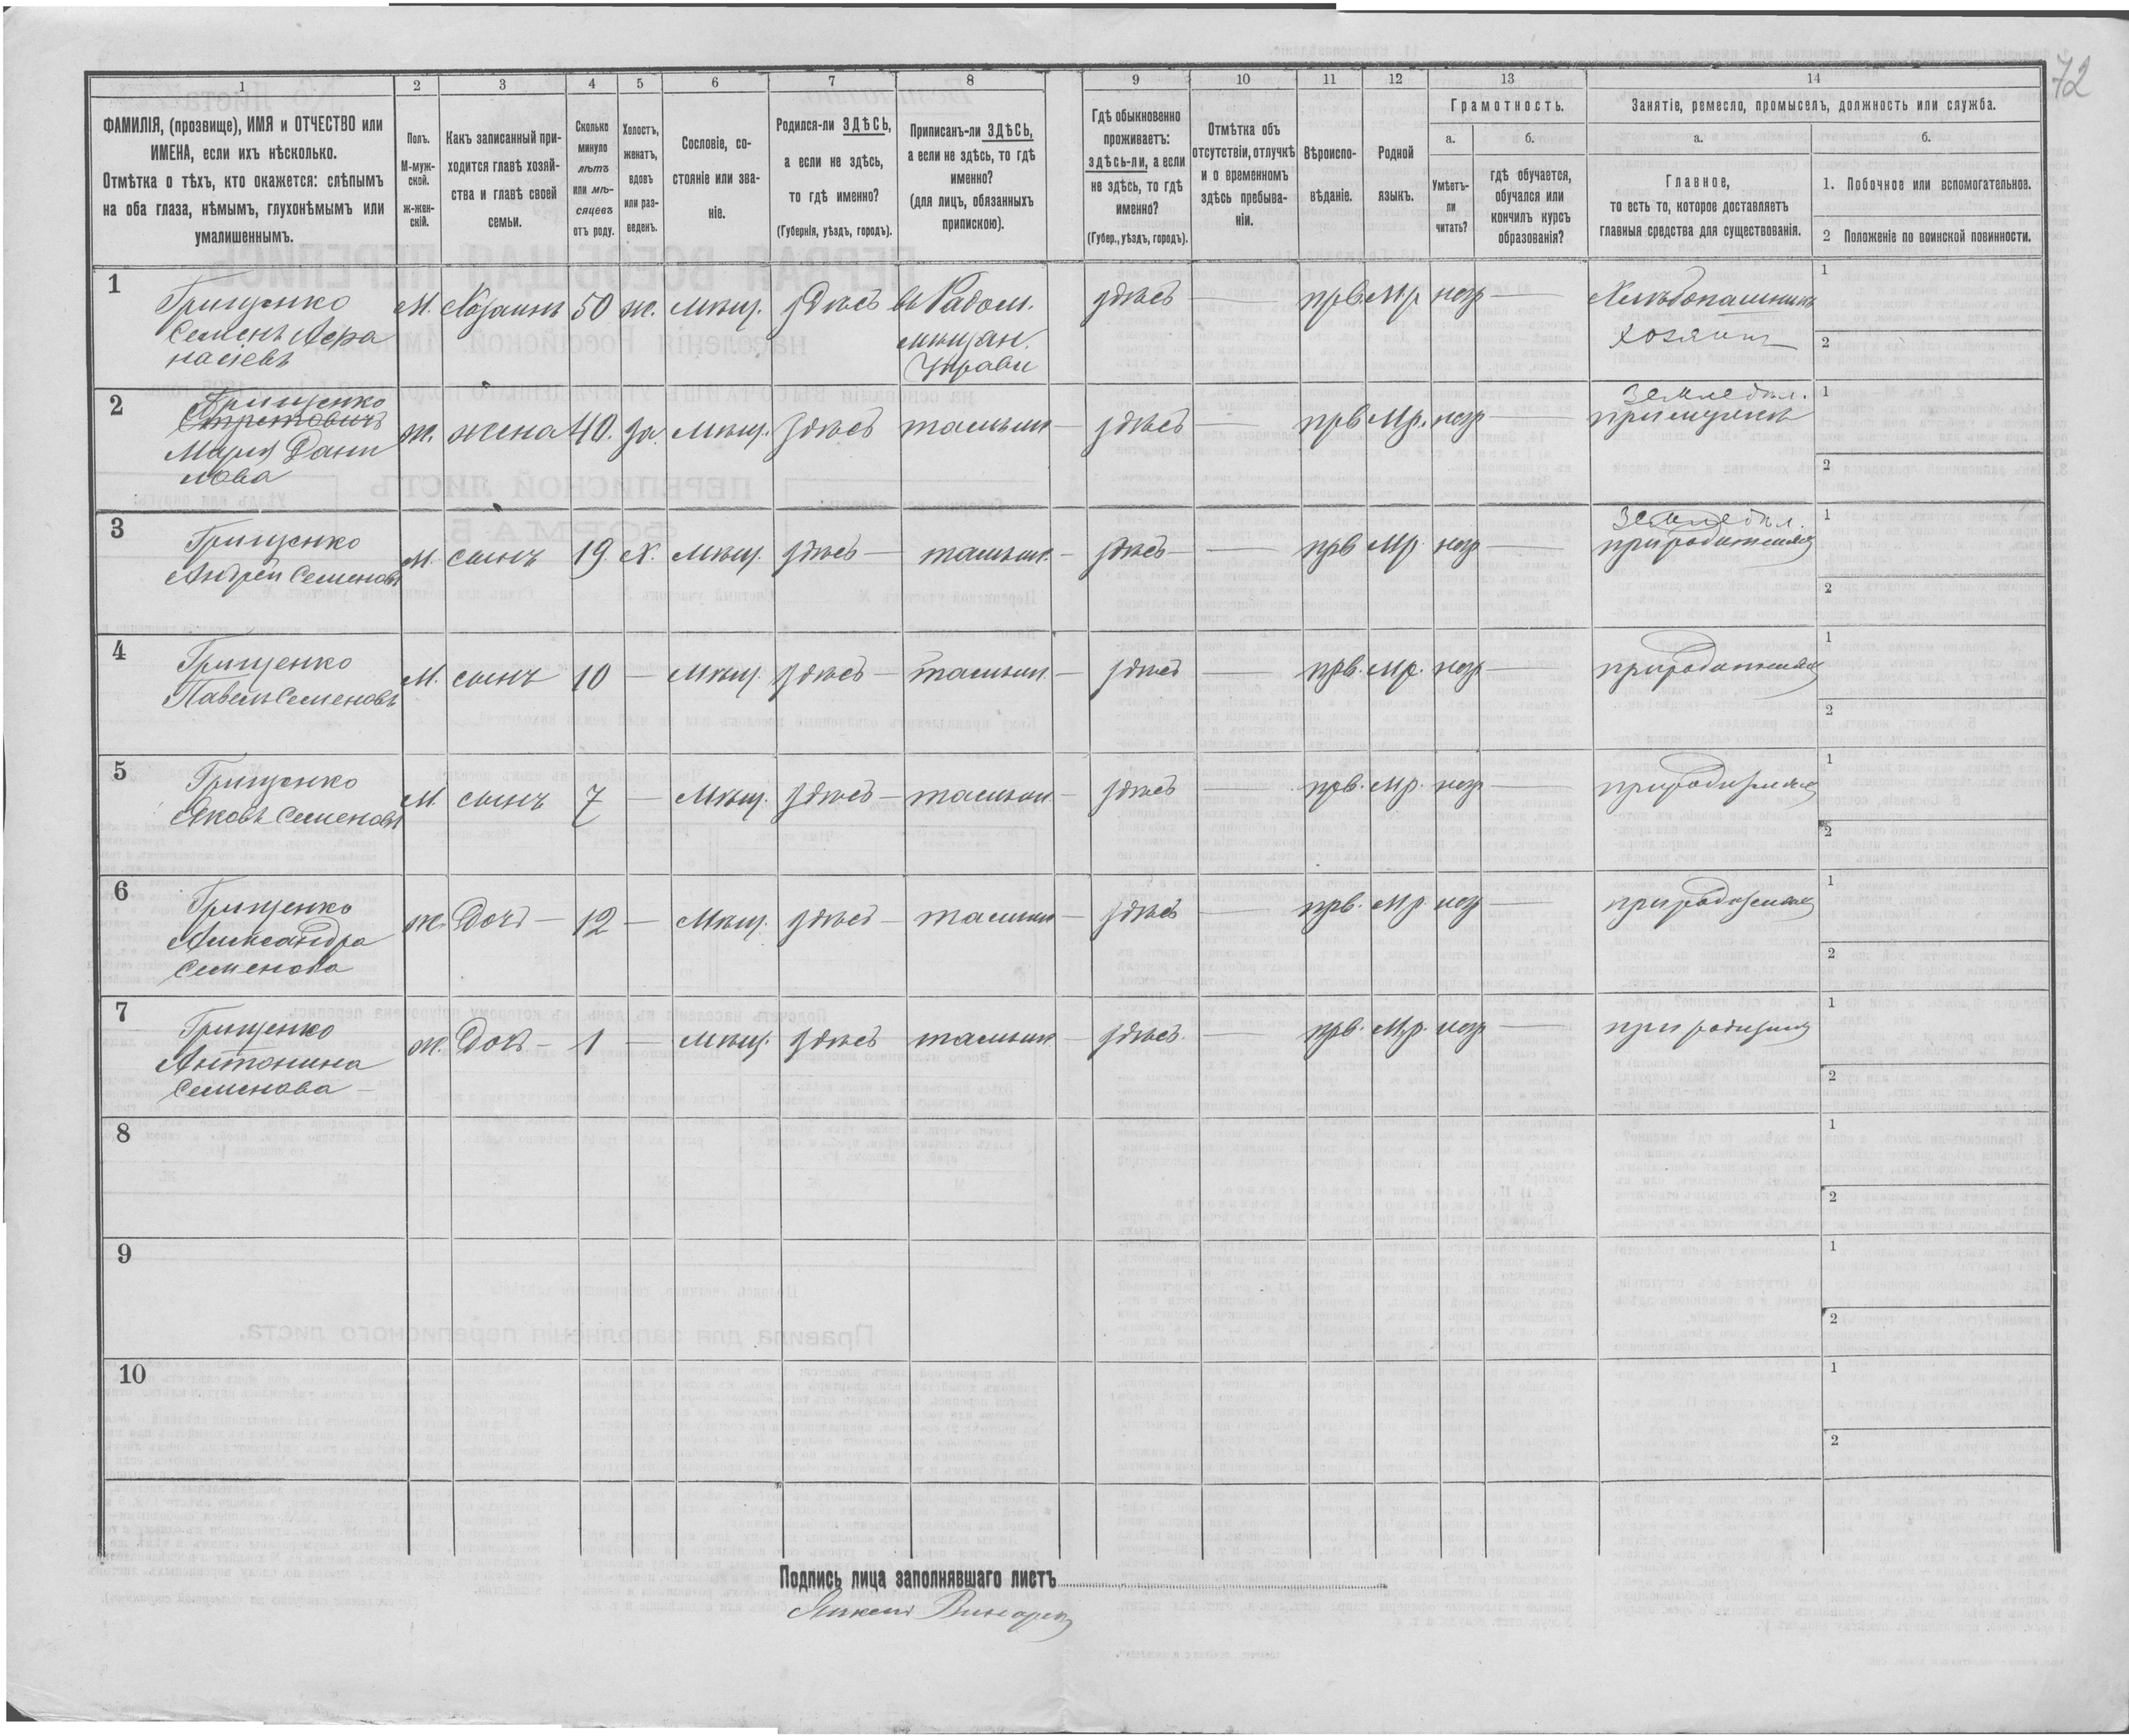 72
1
2
3
4
5
6
7
8
9
10
11
12
13
14
ФАМИЛІЯ, (прозвище), ИМЯ и ОТЧЕСТВО или
ИМЕНА, если ихъ нѣсколько.
Отмѣтка о тѣхъ, кто окажется: слѣпымъ
на оба глаза, нѣмымъ, глухонѣмымъ или
умалишеннымъ.
Полъ.
М-муж-
ской.
ж-жен-
скій.
Какъ записанный при-
ходится главѣ хозяй-
ства и главѣ своей
семьи.
Сколько
минуло
лѣтъ
или мѣ-
сяцевъ
отъ роду.
Холостъ,
женатъ,
вдовъ
или раз-
веденъ.
Сословіе, со-
стояніе или зва-
ніе.
Родился-ли ЗДѢСЬ,
а если не здѣсь,
то гдѣ именно?
(Губернія, уѣздъ, городъ).
Приписанъ-ли ЗДѢСЬ,
а если не здѣсь, то гдѣ
именно?
(для лицъ, обязанныхъ
припискою).
Гдѣ обыкновенно
проживаетъ:
здѣсь-ли, а если
не здѣсь, то гдѣ
именно?
(Губер., уѣздъ, городъ).
Отмѣтка объ
отсутствіи, отлучкѣ
и о временномъ
здѣсь пребыва-
ніи.
Вѣроиспо-
вѣданіе.
Родной
языкъ.
Грамотность.
а.
Умѣетъ-
ли
читать?
б.
гдѣ обучается,
обучался или
кончилъ курсъ
образованія?
Занятіе, ремесло, промыселъ, должность или служба.
а.
Главное,
то есть то, которое доставляетъ
главныя средства для существованія.
б.
1. Побочное или вспомогательное.
2 Положеніе по воинской повинности.
1 Грищенко М. Хозяинъ 50 ж. мѣщ. здѣсь въ Радом. здѣсь — прв. Мр. нѣт — Хлѣбопашникъ 1
Семенъ Афа мѣщан. хозяинъ
насіевъ Управи 2
2 Грищенко Земледѣл. 1
ж. жена 40. за. Мѣщ. здѣсь тамъ здѣсь — прв Мр. нѣт —
Марія Дани
лова 2
3 Грищенко Земледѣл. 1
Андрей Семеновъ М. сынъ 19. Х. Мѣщ. здѣсь — тамъ — здѣсь — прв Мр. нѣт — природителяхъ 2
4 Грищенко 1
Павелъ Семеновъ М. сынъ 10 — Мѣщ. здѣсь — тамъ — здѣсь — прв. Мр. нѣт — природителяхъ 2
5 Грищенко 1
Яковъ Семеновъ М. сынъ 7 — Мѣщ. здѣсь — тамъ — здѣсь — прв. Мр. нѣт — природителяхъ 2
6 Грищенко 1
Александра ж. Дочь — 12 — Мѣщ. здѣсь — тамъ — здѣсь — прв. Мр. нѣт — природителяхъ
Семенова 2
7 Грищенко 1
Антонина ж. Дочь — 1 — мѣщ. здѣсь тамъ — здѣсь — прв. Мр. нѣт — природителяхъ
Семенова — 2
8 1
2
9 1
2
10 1
2
Подпись лица заполнявшаго листъ